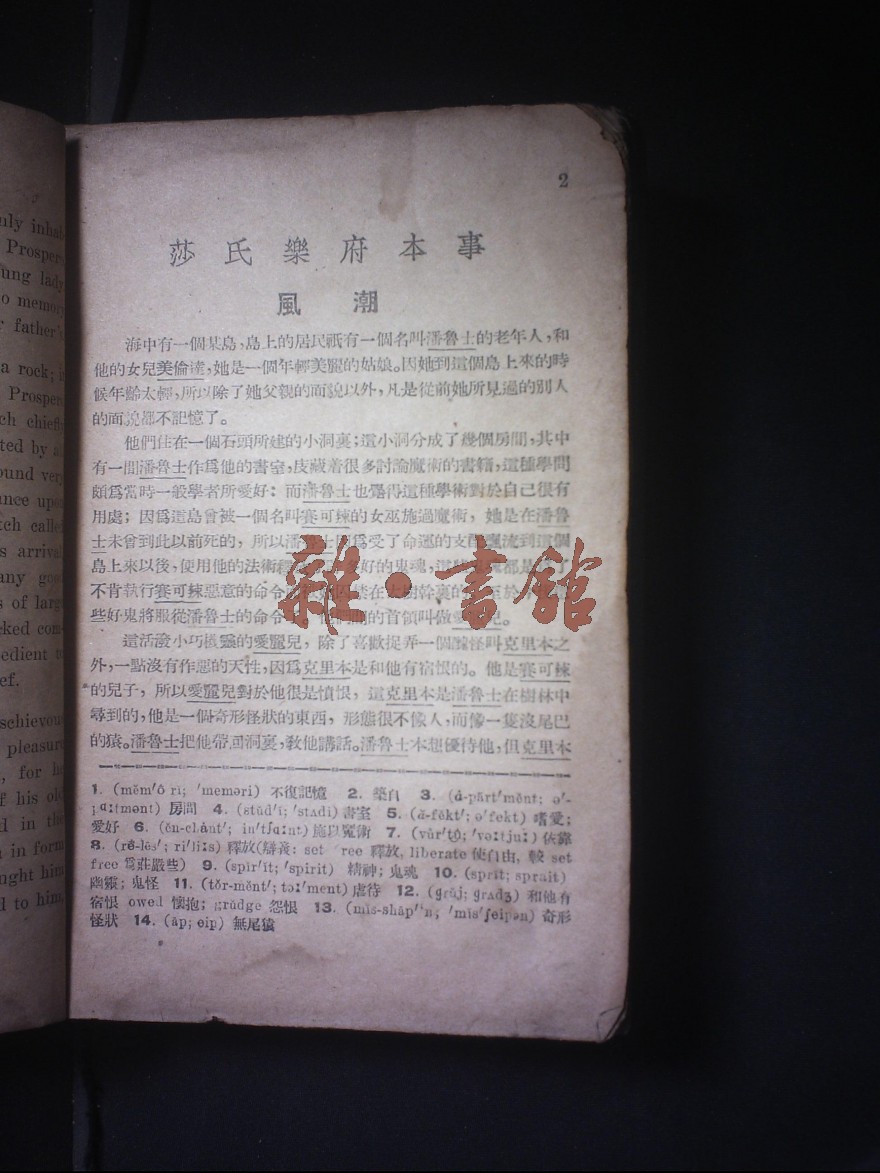 nly inhab
Prosper
ung lady
o memory
father's
a rock; i
Prosper
ch chiefly
ted by a
ound very
ance upon
tch called
s arrival
any good
s of large
cked com-
edient to
ef.
schievous
pleasure
, for he
f his old
d in the
n in form
ught him
d to him,
2
莎氏樂府本事
風潮
海中有一個某島,島上的居民祇有一個名叫潘魯士的老年人,和
他的女兒美倫達,她是一個年輕美麗的姑娘。因她到這個島上來的時
候年齡太輕,所以除了她父親的面貌以外,凡是從前她所見過的別人
的面貌都不記憶了。
他們住在一個石頭所建的小洞裏;這小洞分成了幾個房間,其中
有一間潘魯士作爲他的書室,庋藏着很多討論魔術的書籍,這種學問
頗爲當時一般學者所愛好:而潘魯士也覺得這種學術對於自己很有
用處;因爲這島曾被一個名叫賽可棟的女巫施過魔術,她是在潘魯
士未曾到此以前死的,所以潘魯士爲受了命運的支配飄流到這個
島上來以後,使用他的法術好的鬼魂,都是
不肯執行賽可棟惡意的命令在大樹幹裏的至於
些好鬼將服從潘魯士的命令。他們的首領叫做愛麗兒。
這活潑小巧機靈的愛麗兒,除了喜歡捉弄一個醜怪叫克里本之
外,一點沒有作惡的天性,因爲克里本是和他有宿恨的。他是賽可棟
的兒子,所以愛麗兒對於他很是憤恨,這克里本是潘魯士在樹林中
尋到的,他是一個奇形怪狀的東西,形態很不像人,而像一隻沒尾巴
的猿。潘魯士把他帶回洞裏,教他講話。潘魯士本想優待他,但克里本
1. (mĕm'ô rĭ; 'meməri) 不復記憶 2. 鑿自 3. (á-pärt'mĕnt; ə'-
pɑːtmənt) 房間 4. (stŭd'ĭ; 'stʌdi) 書室 5. (ă-fĕkt'; ə'fekt) 嗜愛;
愛好 6. (ĕn-chánt'; in'tʃɑːnt) 施以魔術 7. (vûr'tų; 'vəːtjuː) 依靠
8. (rê-lēs'; ri'liːs) 釋放(辯義: set free 釋放, liberate 使自由, 較 set
free 爲莊嚴些) 9. (spĭr'ĭt; 'spirit) 精神; 鬼魂 10. (sprīt; sprait)
幽靈; 鬼怪 11. (tŏr-mĕnt'; tɔː'ment) 虐待 12. (grŭj; grʌdʒ) 和他有
宿恨 owed 懷抱; grudge 怨恨 13. (mĭs-shāp''n; 'mis'ʃeipən) 奇形
怪狀 14. (āp; eip) 無尾猿
雜·書館